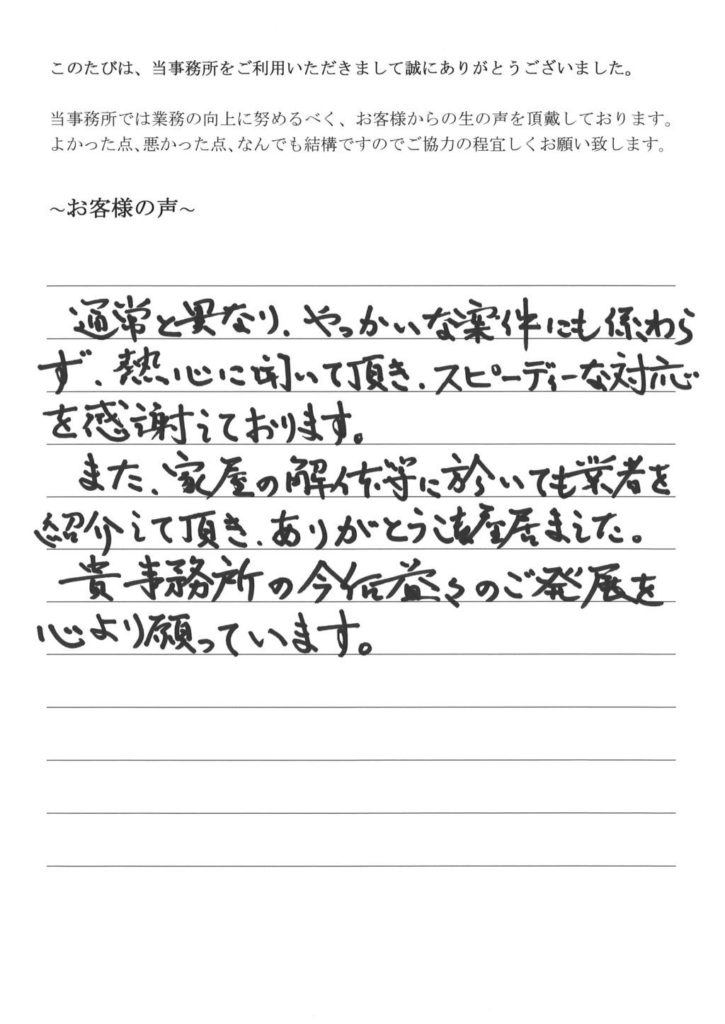 このたびは、当事務所をご利用いただきまして誠にありがとうございました。
当事務所では業務の向上に努めるべく、お客様からの生の声を頂戴しております。
よかった点、悪かった点、なんでも結構ですのでご協力の程宜しくお願い致します。
～お客様の声～
通常と異なり、やっかいな案件にも係わら
ず、熱心に聞いて頂き、スピーディーな対応
を感謝しております。
また、家屋の解体等に於いても業者を
紹介して頂き、ありがとうご座居ました。
貴事務所の今后益々のご発展を
心より願っています。